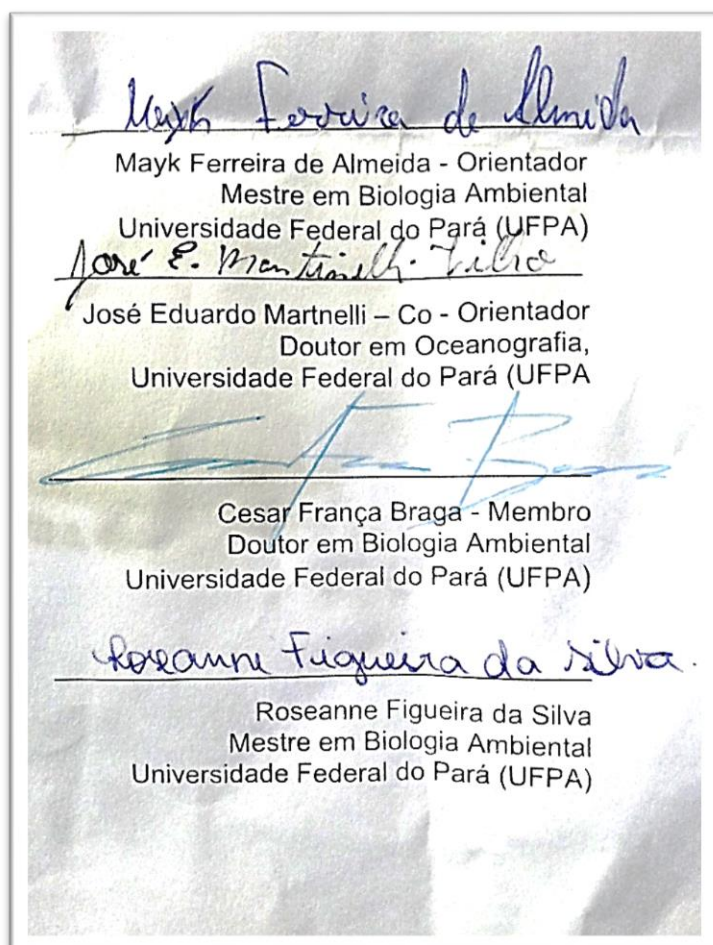 Mayk Ferreira de Almeida
Mayk Ferreira de Almeida - Orientador
Mestre em Biologia Ambiental
Universidade Federal do Pará (UFPA)
José E. Martinelli-Filho
José Eduardo Martnelli – Co - Orientador
Doutor em Oceanografia,
Universidade Federal do Pará (UFPA
Cesar França Braga - Membro
Doutor em Biologia Ambiental
Universidade Federal do Pará (UFPA)
Roseanne Figueira da Silva.
Roseanne Figueira da Silva
Mestre em Biologia Ambiental
Universidade Federal do Pará (UFPA)